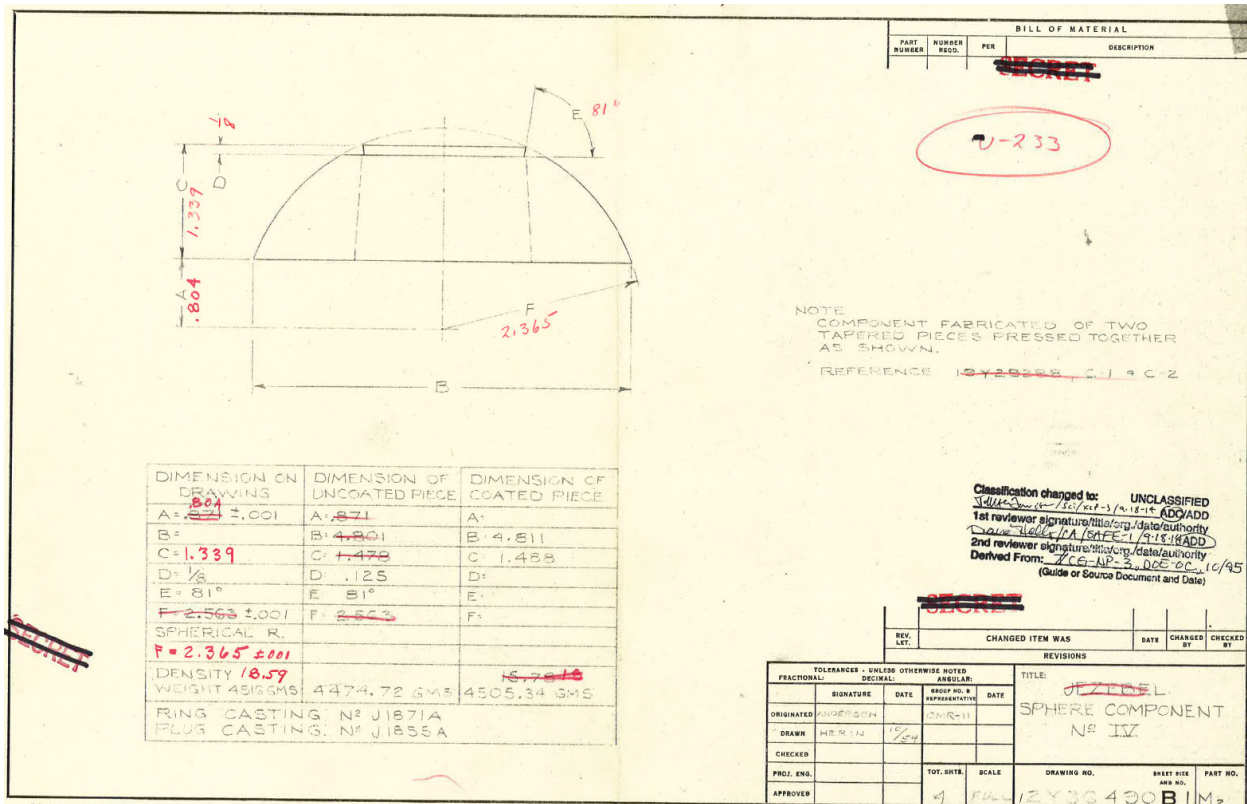 BILL OF MATERIAL
PART NUMBER
NUMBER REQD.
PER
DESCRIPTION
SECRET
U-233
1/8
E 81°
D
C 1.339
A .804
F 2.365
B
NOTE
COMPONENT FABRICATED OF TWO
TAPERED PIECES PRESSED TOGETHER
AS SHOWN.
REFERENCE 12Y28288, C-1 & C-2
DIMENSION ON DRAWING
DIMENSION OF UNCOATED PIECE
DIMENSION OF COATED PIECE
.804
A=.871 ±.001 A=.871 A=
B= B=4.801 B=4.811
C=1.339 C=1.478 C=1.488
D=1/8 D=.125 D=
E=81° E=81° E=
F=2.563 ±.001 F=2.563 F=
SPHERICAL R.
F=2.365 ±001
DENSITY 18.59
WEIGHT 4516 GMS 4474.72 GMS 4505.34 GMS
RING CASTING. Nº J1871A
PLUG CASTING. Nº J1855A
SECRET
Classification changed to: UNCLASSIFIED
ADC/ADD
1st reviewer signature/title/org./date/authority
9-18-14 ADD
2nd reviewer signature/title/org./date/authority
Derived From: DOE-OC, 10/95
(Guide or Source Document and Date)
SECRET
REV. LET.
CHANGED ITEM WAS
DATE
CHANGED BY
CHECKED BY
REVISIONS
TOLERANCES - UNLESS OTHERWISE NOTED
FRACTIONAL: DECIMAL: ANGULAR:
SIGNATURE DATE GROUP NO. & REPRESENTATIVE DATE
ORIGINATED ANDERSON CMR-11
DRAWN HERIN 10/59
CHECKED
PROJ. ENG.
APPROVED
TOT. SHTS. 4
SCALE FULL
TITLE:
JEZEBEL
SPHERE COMPONENT
Nº IV
DRAWING NO.
SHEET SIZE AND NO.
PART NO.
B 1